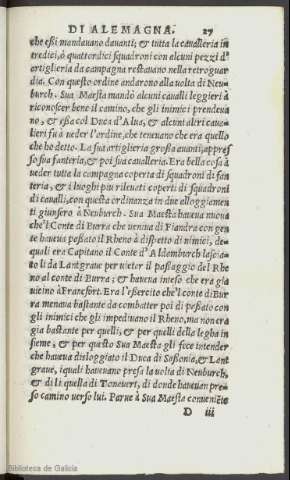 DI ALEMAGNA. 27
che essi mandauano dauanti; & tutta la caualleria in
tredici, ò quattordici squadroni con alcuni pezzi d'
artiglieria da campagna restauano nella retroguar
dia. Con questo ordine andarono alla volta di Neu-
burch. Sua Maestà mandò alcuni caualli leggieri à
riconoscer bene il camino, che gli inimici prendeua
no, & essa col Duca d'Alua, & alcuni altri caua-
lieri fu à veder l'ordine, che teneuano che era quello
che ho detto. La sua artiglieria grossa auanti, appres
so sua fanteria, & poi sua caualleria. Era bella cosa à
veder tutta la campagna coperta di squadroni di fan
teria, & i luoghi piu rileuati coperti di squadroni
di caualli, con questa ordinanza in due alloggiamen
ti giunsero à Neuburch. Sua Maestà haueua nuoua
che'l Conte di Burra che veniua di Fiandra con gen
te haueua passato il Rheno à dispetto di nimici, de-
quali era Capitano il Conte d'Aldemburch lascia-
to li da Lantgraue per vietar il passaggio del Rhe
no al conte di Burra; & haueua inteso che era gia
vicino à Francfort. Era l'essercito che'l conte di Bur
ra menaua bastante da combatter poi di passato con
gli inimici che gli impediuano il Rheno, ma non era
gia bastante per quelli, & per quelli della legha in
sieme, & per questo Sua Maestà gli fece intender
che haueua disloggiato il Duca di Sassonia, & Lant
graue, iquali haueuano presa la volta di Neuburch,
& di li quella di Toneuert, di donde haueuan pre-
so camino verso lui. Parue à Sua Maestà conueniẽte
D iii
Biblioteca de Galicia